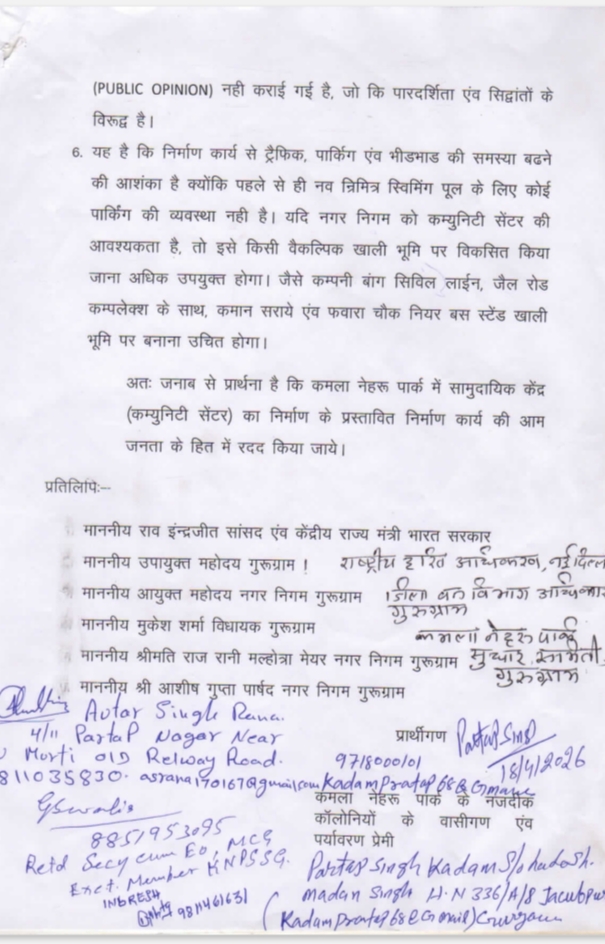 (PUBLIC OPINION) नही कराई गई है, जो कि पारदर्शिता एंव सिद्वांतों के
विरूद्व है।
6. यह है कि निर्माण कार्य से ट्रैफिक, पार्किग एंव भीडभाड की समस्या बढने
की आशंका है क्योंकि पहले से ही नव न्रिमित्र स्विमिंग पूल के लिए कोई
पार्किंग की व्यवस्था नही है। यदि नगर निगम को कम्युनिटी सेंटर की
आवश्यकता है, तो इसे किसी वैकल्पिक खाली भूमि पर विकसित किया
जाना अधिक उपयुक्त होगा। जैसे कम्पनी बांग सिविल लाईन, जैल रोड
कम्पलेक्श के साथ, कमान सराये एंव फवारा चौक नियर बस स्टेंड खाली
भूमि पर बनाना उचित होगा।
अतः जनाब से प्रार्थना है कि कमला नेहरू पार्क में सामुदायिक केंद्र
(कम्युनिटी सेंटर) का निर्माण के प्रस्तावित निर्माण कार्य की आम
जनता के हित में रदद किया जाये।
प्रतिलिपिः—
माननीय राव इंन्द्रजीत सांसद एंव केंद्रीय राज्य मंत्री भारत सरकार
माननीय उपायुक्त महोदय गुरूग्राम। राष्ट्रीय हरित , नई दिल्ल
माननीय आयुक्त महोदय नगर निगम गुरूग्राम जिला वन विभाग
गुरुग्राम
माननीय मुकेश शर्मा विधायक गुरूग्राम कमला नेहरू पार्क
माननीय श्रीमति राज रानी मल्होत्रा मेयर नगर निगम गुरूग्राम सुधार समिती
गुरुग्राम
माननीय श्री आशीष गुप्ता पार्षद नगर निगम गुरूग्राम
Avtar Singh Rana.
4/11 Partap Nagar Near
Morti OLD Relway Road.
811035830. asrana170167@gmail.com
प्रार्थीगण Partap Singh
18/4/2026
9718000101
KadamPratap68@Gmail
कमला नेहरू पार्क के नजदीक
कॉलोनियों के वासीगण एंव
पर्यावरण प्रेमी
8851953095
Retd Secy cum EO, MCG
Exct. Member KNPSSG.
9811461631
Partap Singh Kadam S/o
Madan Singh H.N 336/A/8 Jacubpu
(KadamPratap68@Gmail) Gurgaon